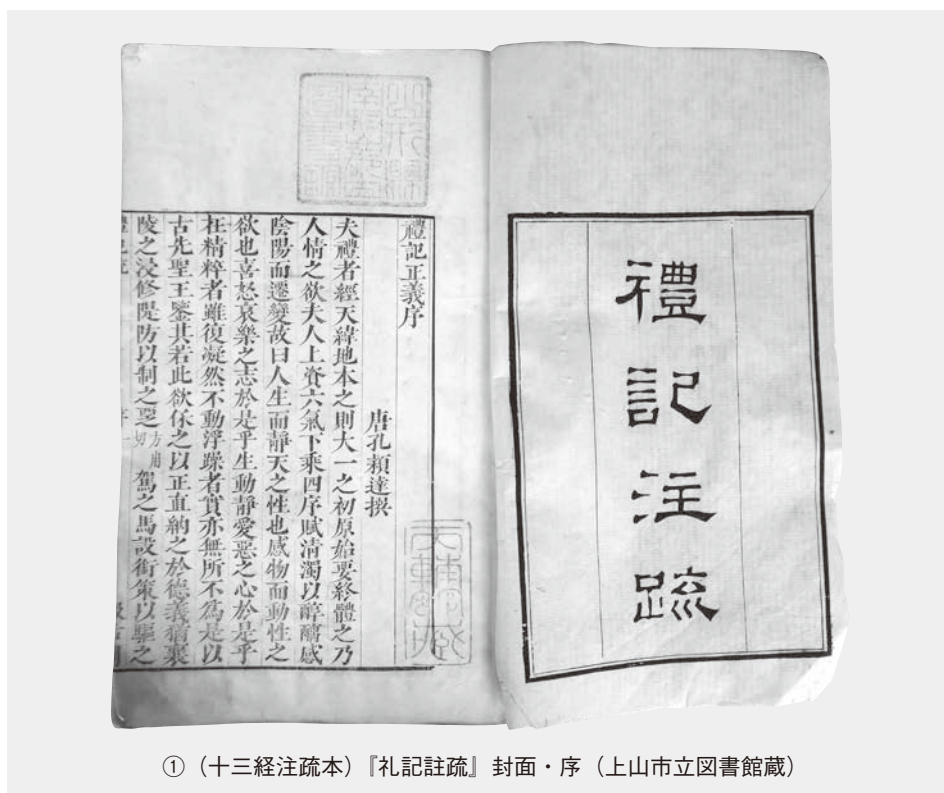 禮記注疏
禮記正義序
唐孔穎達撰
夫禮者經天緯地本之則大一之初原始要終體之乃
人情之欲夫人上資六氣下乘四序賦清濁以醇醨感
陰陽而遷變故曰人生而靜天之性也感物而動性之
欲也喜怒哀樂之志於是乎生動靜愛惡之心於是乎
在精粹者雖復凝然不動浮躁者實亦無所不為是以
古先聖王鑒其若此欲保之以正直納之於德義猶襄
陵之浸修隄防以制之覂方用切駕之馬設銜策以驅之
①（十三経注疏本）『礼記註疏』封面・序（上山市立図書館蔵）